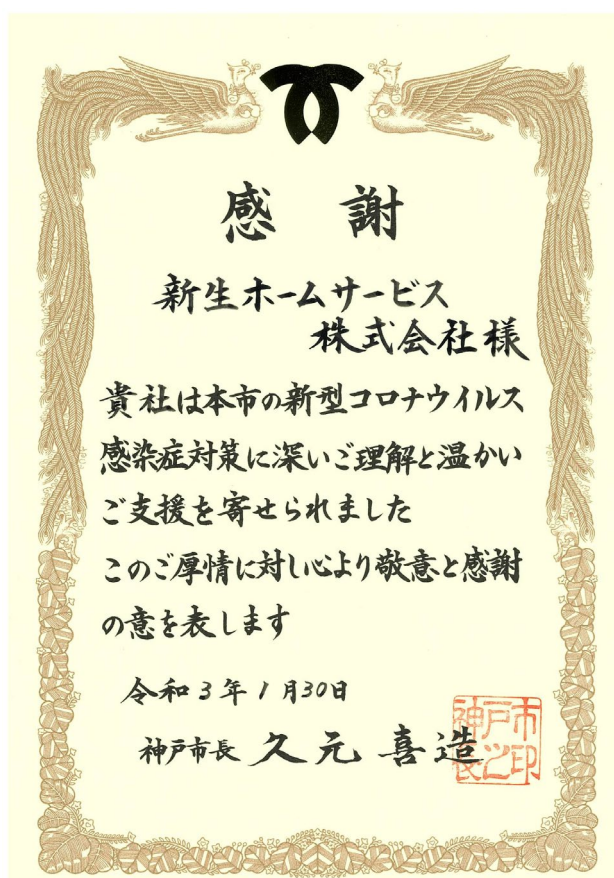 感謝
新生ホームサービス
株式会社様
貴社は本市の新型コロナウイルス
感染症対策に深いご理解と温かい
ご支援を寄せられました
このご厚情に対し心より敬意と感謝
の意を表します
令和3年1月30日
神戸市長 久元喜造
神戸市長之印